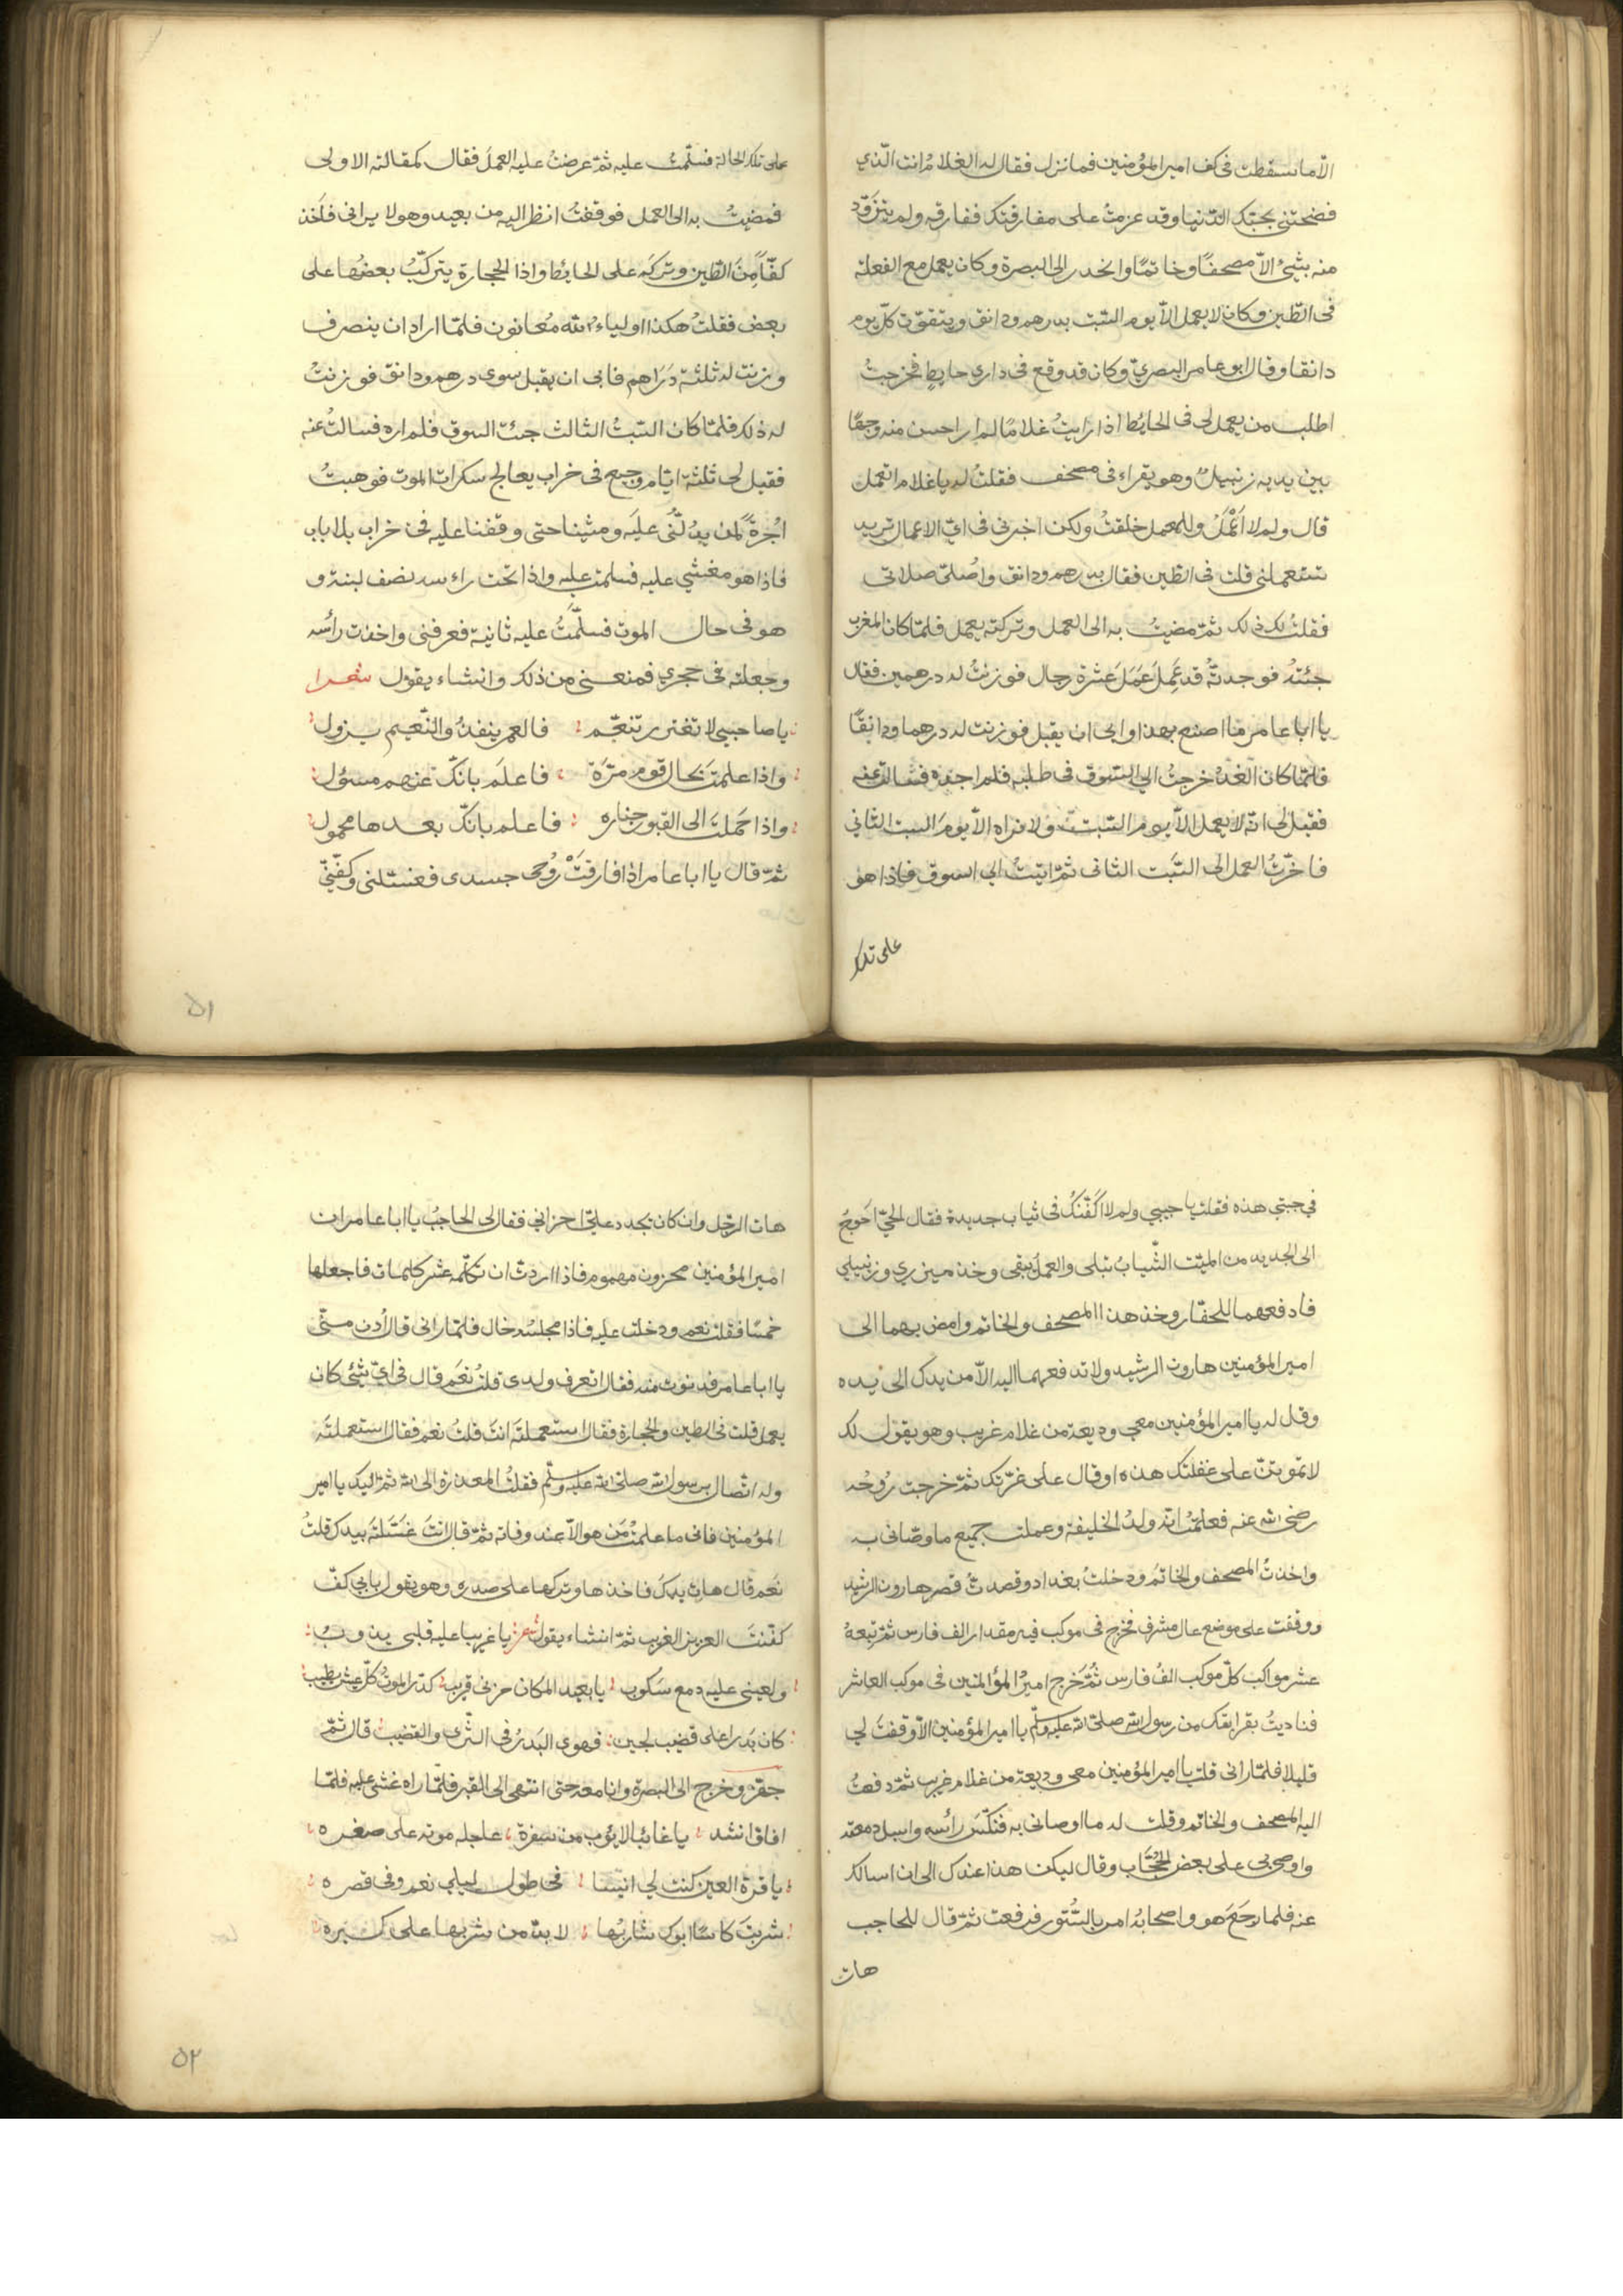 الّا ما سقطت فى كف امير المؤمنين فما نزل فقال له الغلام انت الّذي
فضحتنى بحبّك الدّنيا وقد عزمتُ على مفارقتك ففارقه ولم يتزوّد
منه بشئ الّا مصحفًا وخاتمًا وانحدر الى البصرة وكان يعمل مع الفعلة
فى الطّين وكان لا يعمل الّا يوم السّبت بدرهم ودانق ويتقوّت كلّ يوم
دانقا وقال ابو عامر البصريّ وكان قد وقع فى داري حايط فخرجتُ
اطلب من يعمل لى فى الحايُط اذا رايتُ غلامًا لم ار احسن منه وجهًا
بين يديه زنبيلٌ وهو يقراء فى مصحف فقلتُ له يا غلام اتعمل
قال ولم لا اَعْمَلُ وللعمل خلقتُ ولكن اخبرنى فى ايّ الاعمال تريد
تستعملنى قلت فى الطّين فقال بدرهم ودانق واُصلّى صلاتى
فقلتُ لك ذلك ثمّ مضيتُ به الى العمل وتركته يعمل فلمّا كان المغرب
جئتهُ فوجدتّهُ قد عَمِلَ عَمَلَ عَشرة رجال فوزنتُ له درهمين فقال
يا ابا عامر ما اصنع بهذا وابى ان يقبل فوزنت له درهما ودانقًا
فلمّا كان الغدُ خرجتُ الى السّوق فى طلبه فلم اجده فسالت عنه
فقيل لى انّه لا يعمل الّا يوم السّبت ولا نراه الّا يومَ السبت الثاني
فاخّرتُ العمل الى السَّبت الثانى ثمّ اتيتُ الي السوق فاذا هو
على تلك
على تلك الحالة فسلّمتُ عليه ثمّ عرضتُ عليه العملَ فقال كمقالته الاولى
فمضيتُ به الى العمل فوقفتُ انظر اليه من بعيد وهو لا يرانى فاَخذ
كفّاً مِنَ الطّين وتركَه على الحايُط واذا الحجارة يتركّبُ بعضُها على
بعض فقلتُ هكذا اولياءُ الله مُعانون فلمّا اراد ان ينصرف
وزنت له ثلثة دَرَاهِم فابى ان يقبل سوى درهم ودانق فوزنتُ
له ذلك فلمّا كان السّبتُ الثالث جئت السوق فلم اره فسالتُ عنه
فقيل لى ثلثة ايّام وجيع فى خراب يعالج سكرات الموت فوهبتُ
اُجرةً لمن يدُلّنُى عليَه ومشينا حتى وقفنا عليه فى خراب بلا باب
فاذا هو مغشي عليه فسلمت عليه واذا تحت راءسه نصف لبنة و
هو فى حال الموت فسلّمَتُ عليه ثانية فعرفنى واخذت رأسه
وجعلته فى حجري فمنعنى من ذلك وانشاء يقول شعرا
يا صاحبي لا تغترر بتنعّم فالعمر ينفدُ والنّعيم يزول
واذا علمتَ بحال قوم مرّة فاعلَم بانّك عنهم مسؤل
واذا حَملتَ الى القبور جنازه فاعلم بانّك بعدها محمول
ثمّ قال يا ابا عامر اذا فارقتْ رُوحى جسدى فغسّلنى وكفّنّي
٥١
في جبتي هذه فقلت يا حبيبي ولم لا اكفّنكُ فى ثياب جديدة فقال الحيّ اَحوجُ
الى الجديد من الميّت الثّيابُ تبلى والعملُ يبقى وخذ ميزري وزنبيلي
فادفعهما للحفّار وخذ هذا المصحف والخاتم وامض بهما الى
امير المؤمنين هارون الرشيد ولا تدفعهما اليه الّا من يدك الى يده
وقل له يا امير المؤمنين معى وديعة من غلام غريب وهو يقول لك
لا تموتنّ على غفلتك هذه او قال على غرّتك ثمّ خرجت رُوُحُه
رضى الله عنه فعلمتُ انّه ولدُ الخليفة وعملت جميع ما وصّانى به
واخذتُ المصحف والخاتمَ ودخلتُ بغداد وقصدتُ قصر هارون الرشيد
ووقفت على موضع عال مشرف فخرج فى موكب فيه مقدار الف فارس ثمّ تبعهُ
عشر مواكب كلّ موكب الفُ فارس ثُمّ خَرج اميرُ المؤالمنين فى موكب العاشر
فناديتُ بقرابتك من رسول الله صلى الله عليه وسلّم يا امير المؤمنين الّا وقفتَ لي
قليلا فلمّا رانى قلت يا امير المؤمنين معى وديعة من غلام غريب ثمّ دفعتُ
اليه المصحف والخاتم وقلت له ما اوصانى به فنكّسَ رائسه واسبل دمعته
واوصى بى على بعض الحُجّاب وقال ليكن هذا عندك الى ان اسالك
عنه فلما رجَعَ هو واصحابهُ امر بالسُّتور فرفعت ثمّ قال للحاجب
هات
هات الرّجل وان كان يجدد علىّ احزانى فقال لى الحاجبُ يا ابا عامر ان
امير المؤمنين محزون مهموم فاذا اردتَ ان تكلّمه عشر كلمات فاجعلها
خمسًا فقلت نعم ودخلت عليه فاذا مجلسُه خال فلمّا رانى قال اُدن منّى
يا ابا عامر فدنوت منه فقال اتعرف ولدى قلتُ نعَم قال فى ايّ شئ كان
يعمل قلت فى الطين والحجارة فقال استعملتَه انتَ قلتُ نعم فقال استعملتَه
وله اتّصال برسول الله صلى الله عليه وسلّم فقلتُ المعذرة الى الله ثمّ اليك يا امير
المؤمنين فانى ما علمتُ مَن هو الّا عند وفاته ثمّ قال انتَ غسّلتَه بيدك قلتُ
نعَم قال هات يدكَ فاخذها وتركها على صدره وهو يقول بابي كفّ
كفّنتَ العزيز الغريب ثمّ انشاء يقول شعر يا غريبا عليه قلبي يذوبُ
ولعينى عليه دمع سَكوب يا بعيد المكان حزنى قريب كدّر الموتُ كلّ عيش يطيب
كان بَدرا على قضيب لجين فهوى البَدرُ فى الثّرى والقضيب قال ثمّ
جهّز وخرج الى البصرة وانا معه حتى انتهى الى القبر فلمّا راه غشى عليه فلمّا
افاق انشد يا غائبًا لا يؤب من سفرة عاجله موته على صغره
يا قرة العين كنت لي انيسا فى طول ليلي نعم وفى قصره
شربتَ كاسًا ابوك شاربُها لا بدّ من شربها على كبره
٥٢